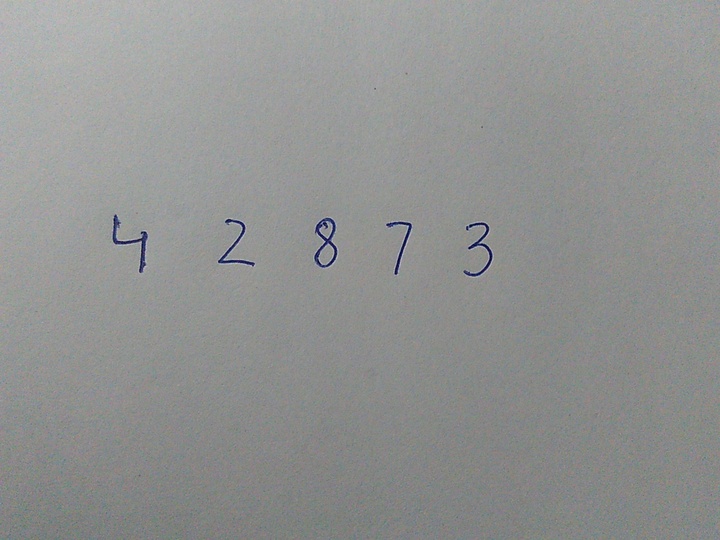 4 2 8 7 3